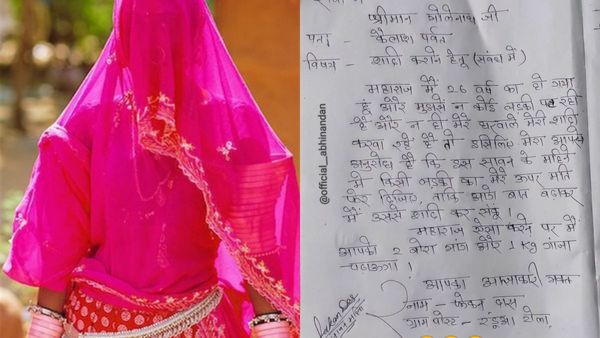 श्रीमान भोलेनाथ जी
पता - कैलाश पर्वत
विषय - शादी कराने हेतु (संबंध में)
महाराज मैं 26 वर्ष का हो गया
हूं और मुझसे न कोई लडकी पट रही
है और न ही मेरे घरवाले मेरी शादी
करवा रहे है तो इसलिए मेरा आपसे
अनुरोध है कि इस सावन के महिने
मे किसी लडकी का मेरे ऊपर मति
फेर दिजिए ताकि आगे बात बढाकर
मैं उससे शादी कर सकूं।
महाराज ऐसा करने पर मैं
आपको 2 बोरा भांग और 1 kg गांजा
चढाऊगा।
आपका आज्ञाकारी भक्त
नाम - फेकन दास
ग्राम पोस्ट - रंडुआ टोला
@official__abhinandan